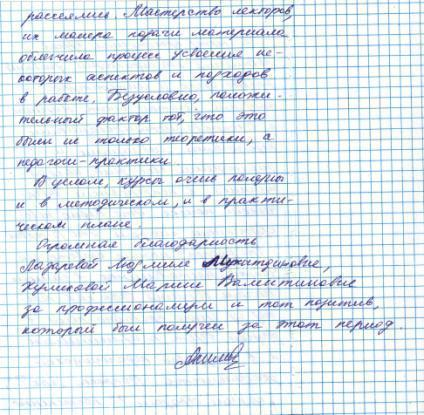 рассеялись Мастерство лекторов,
их манера подачи материала
облегчила процесс усвоения не-
которых аспектов и подходов
в работе. Безусловно, положи-
тельный фактор тот, что это
были не только теоретики, а
педагоги-практики
В целом, курсы очень полезны
и в методическом, и в практи-
ческом плане.
Огромная благодарность
Лазаревой Людмиле Мухитдиновне,
Куликовой Марине Валентиновне
за профессионализм и тот позитив,
который был получен за этот период.